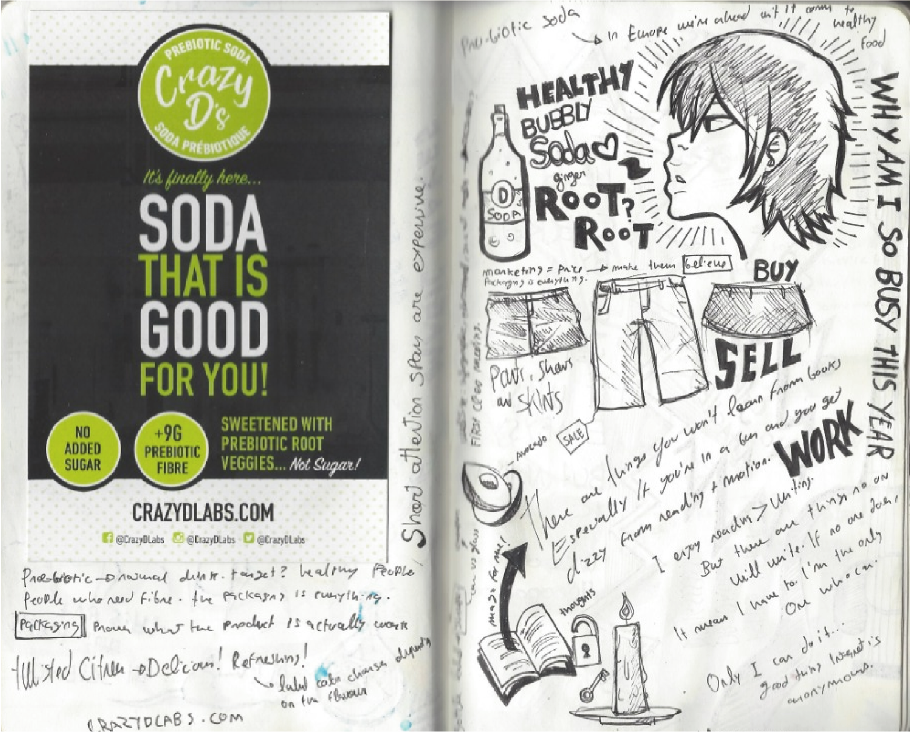 PREBIOTIC SODA
Crazy
D's
SODA PRÉBIOTIQUE
It's finally here...
SODA
THAT IS
GOOD
FOR YOU!
NO
ADDED
SUGAR
+9G
PREBIOTIC
FIBRE
SWEETENED WITH
PREBIOTIC ROOT
VEGGIES... Not Sugar!
CRAZYDLABS.COM
@CrazyDLabs @CrazyDLabs @CrazyDLabs
Short attention span are expensive.
normal drink. target? healthy People,
People who need fibre. the packaging is everything.
Packaging what the product is actually
Twisted Citrus → Delicious! Refreshing!
label color changes depending
on the flavour
CRAZYDLABS.COM
Pre-biotic soda
in Europe we're ahead it comes to
healthy
food
HEALTHY
BUBBLY
Soda
ginger
ROOT?
ROOT
D
SODA
WHY AM I SO BUSY THIS YEAR
marketing = Price → make them believe
Packaging is everything.
BUY
SELL
Pants, Shorts
and SKIRTS
SALE
AVOCADO
WORK
There are things you won't learn from books
Especially if you're in a bus and you get
dizzy from reading + motion.
I enjoy reading > writing.
But there are things no on
will write. If no one does,
It means I have to. I'm the only
One who can.
Only I can do it...
good thing Internet is
anonymous.
thoughts